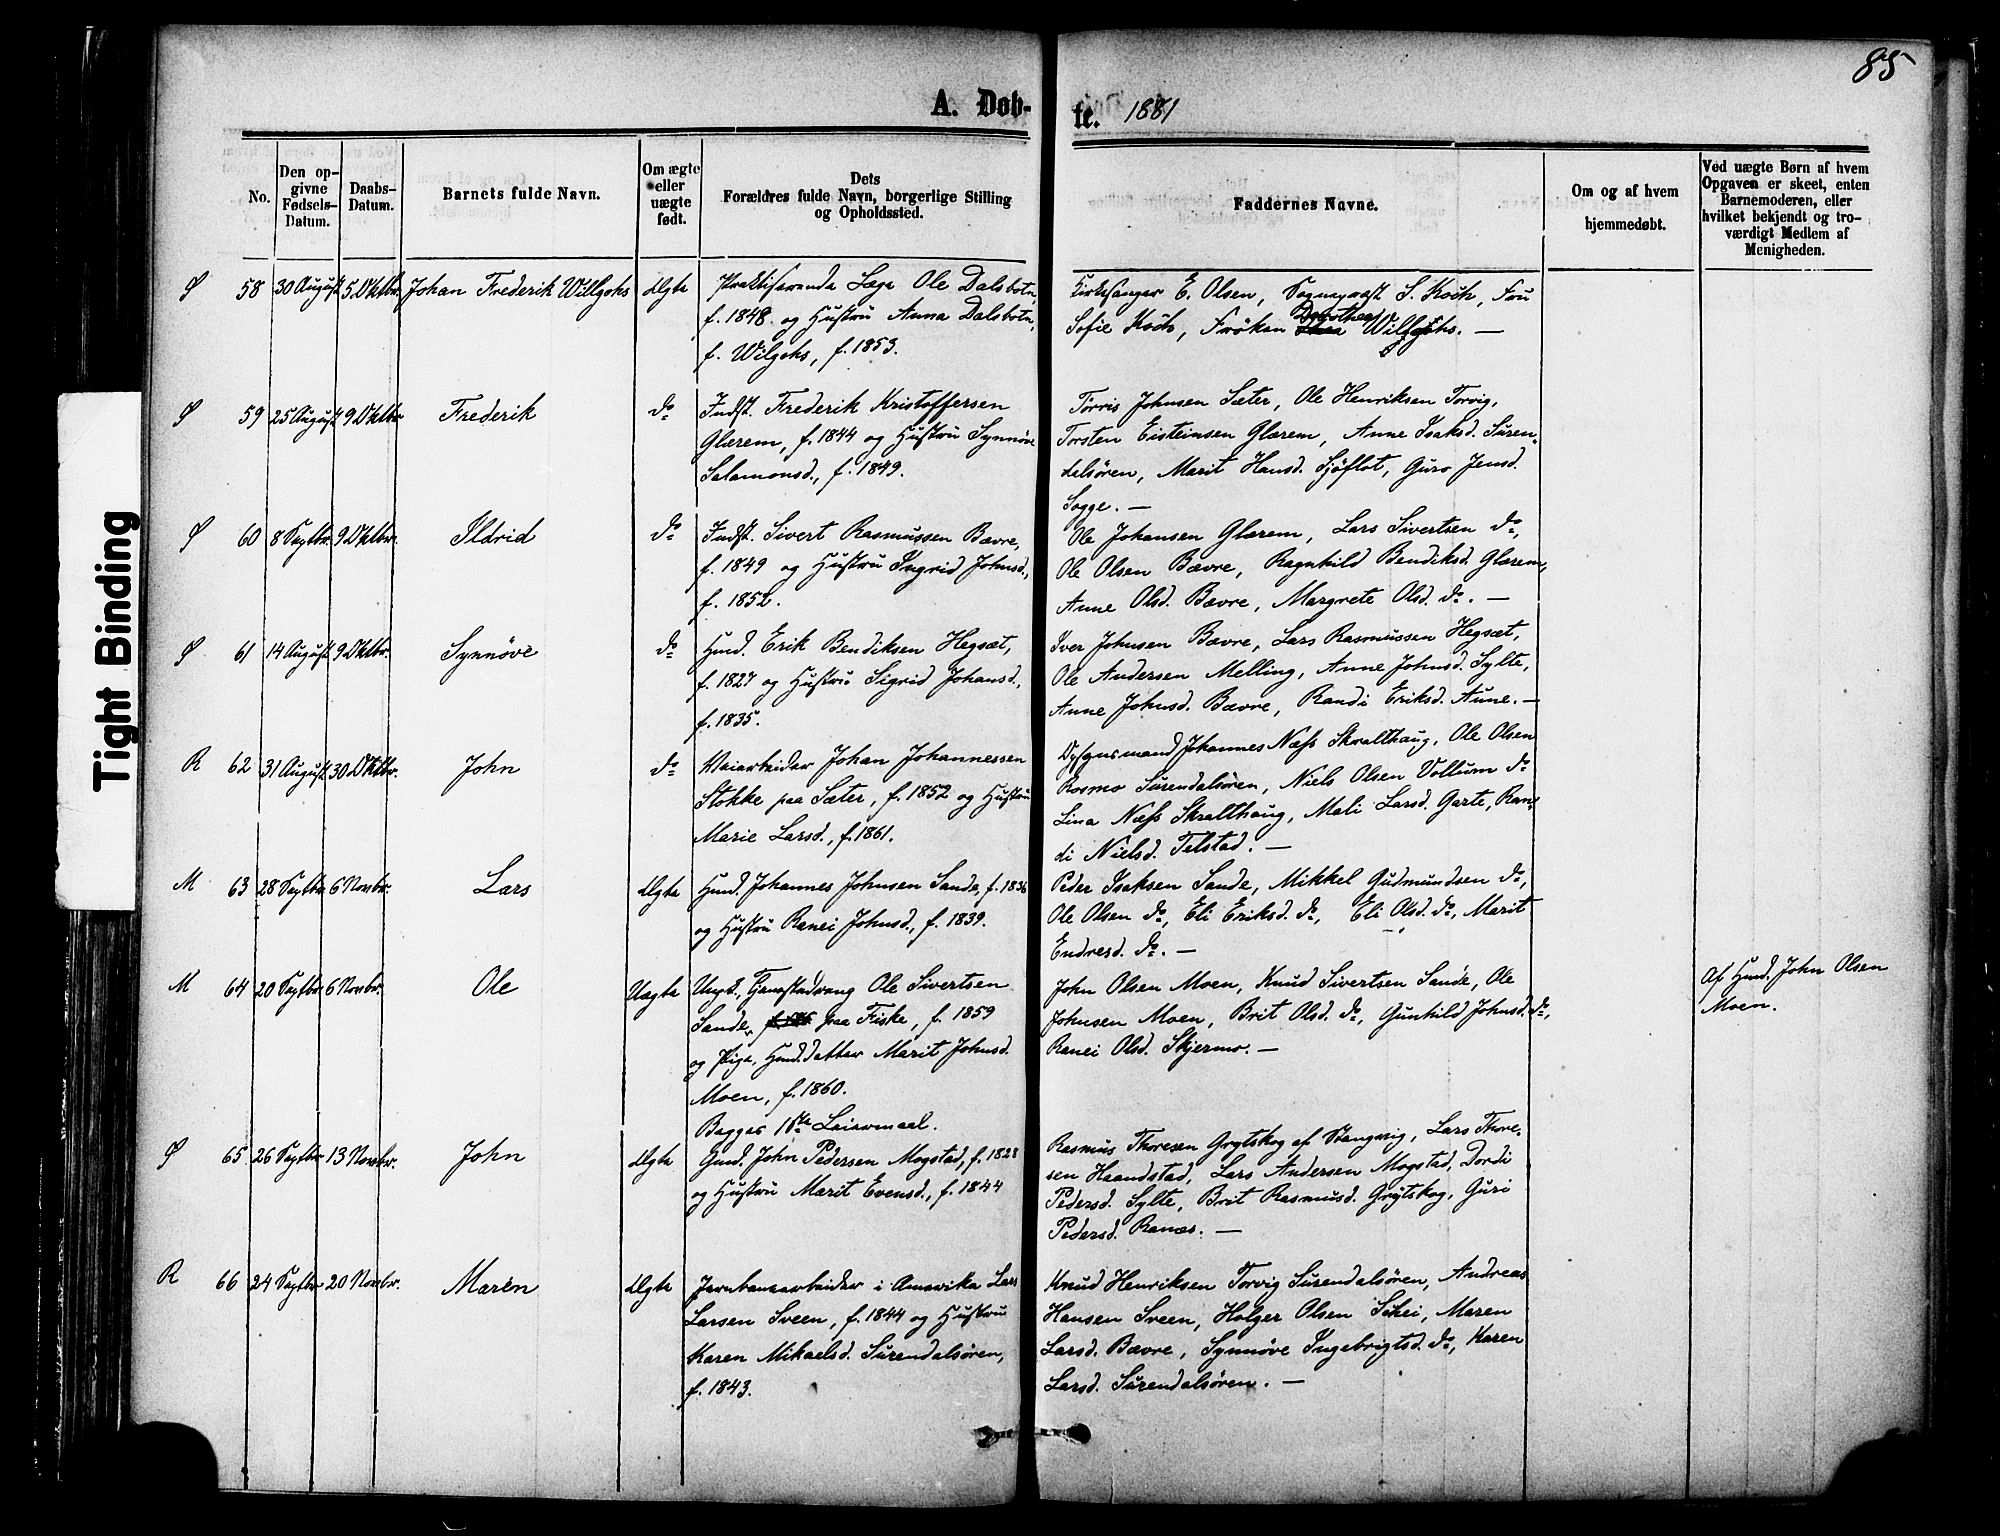 85
A. Døb-
te. 1881
No.
Den op-
givne
Fødsels-
Datum.
Daabs-
Datum.
Barnets fulde Navn.
Om ægte
eller
uægte
født.
Dets
Forældres fulde Navn, borgerlige Stilling
og Opholdssted.
Faddernes Navne.
Om og af hvem
hjemmedøbt.
Ved uægte Børn af hvem
Opgaven er skeet, enten
Barnemoderen, eller
hvilket bekjendt og tro-
værdigt Medlem af
Menigheden.
Ø 58 30 August 5 Oktbr. Johan Frederik Willgohs Ægte
Praktiserende Læge Ole Dalsbotn,
f. 1848 og Hustru Anna Dalsbotn,
f. Wilgohs, f. 1853.
Kirkesanger E. Olsen, Sogneprest S. Koch, Fru
Dorothea
Sofie Koch, Frøken Willgohs. —
Ø 59 25 August 9 Oktbr. Frederik do
Indst. Frederik Kristoffersen
Glærem, f. 1844 og Hustru Synnøve
Salamonsd., f. 1849.
Torris Johnsen Sæter, Ole Henriksen Torvig,
Torsten Eisteinsen Glærem, Anne Isaksd. Suren-
dalsøren, Marit Hansd. Sjøflot, Guro Jensd.
Sogge. —
Ø 60 8 Septbr. 9 Oktbr. Ildrid do
Indst. Sivert Rasmussen Bævre,
f. 1849 og Hustru Ingrid Johnsd.,
f. 1852.
Ole Johansen Glærem, Lars Sivertsen do,
Ole Olsen Bævre, Ragnhild Bendiksd. Glærem,
Anne Olsd. Bævre, Margrete Olsd. do. —
Ø 61 14 August 9 Oktbr. Synnøve do
Husd. Erik Bendiksen Hegsæt,
f. 1827 og Hustru Sigrid Johansd.,
f. 1835.
Iver Johnsen Bævre, Lars Rasmussen Hegsæt,
Ole Andersen Melling, Anne Johnsd. Sylte,
Anne Johnsd. Bævre, Randi Eriksd. Aune. —
R 62 31 August 30 Oktbr. John do
Veiarbeider Johan Johannessen
Stokke paa Sæter, f. 1852 og Hustru
Marie Larsd., f. 1861.
Johannes Næss Skralthaug, Ole Olsen
Rosmo Surendalsøren, Niels Olsen Vollum do
Lina Næss Skralthaug, Mali Larsd. Garte, Ran-
di Nielsd. Telstad. —
M 63 28 Septbr. 6 Novbr. Lars Ægte
Husd. Johannes Johnsen Sande, f. 1836
og Hustru Ranei Johnsd., f. 1839.
Peder Isaksen Sande, Mikkel Gudmundsen do,
Ole Olsen do, Eli Eriksd. do, Eli Olsd. do, Marit
Endresd. do. —
M 64 20 Septbr. 6 Novbr. Ole Uægte
Ungk., Ole Sivertsen
Sande, paa Fiske, f. 1859
og Pige, Husd.datter Marit Johnsd.
Moen, f. 1860.
Begges 1ste Leiermaal.
John Olsen Moen, Knud Sivertsen Sande, Ole
Johnsen Moen, Brit Olsd. do, Gunhild Johnsd. do,
Ranei Olsd. Skjermo. —
Af Husd. John Olsen
Moen.
Ø 65 26 Septbr. 13 Novbr. John Ægte
Gmd. John Pedersen Mogstad, f. 1828
og Hustru Marit Evensd., f. 1844
Rasmus Thoresen Grytskog af Stangvig, Lars Thore-
sen Haandstad, Lars Andersen Mogstad, Dordi
Pedersd. Sylte, Brit Rasmusd. Grytskog, Guri
Pedersd. Ranæs. —
R 66 24 Septbr. 20 Novbr. Maren Ægte
Jernbanearbeider i Amerika Lars
Larsen Sveen, f. 1844 og Hustru
Karen Mikaelsd. Surendalsøren,
f. 1843.
Knud Henriksen Torvig Surendalsøren, Andreas
Hansen Sveen, Holger Olsen Schei, Maren
Larsd. Bævre, Synnøve Ingebrigtsd. do, Karen
Larsd. Surendalsøren. —
Tight Binding